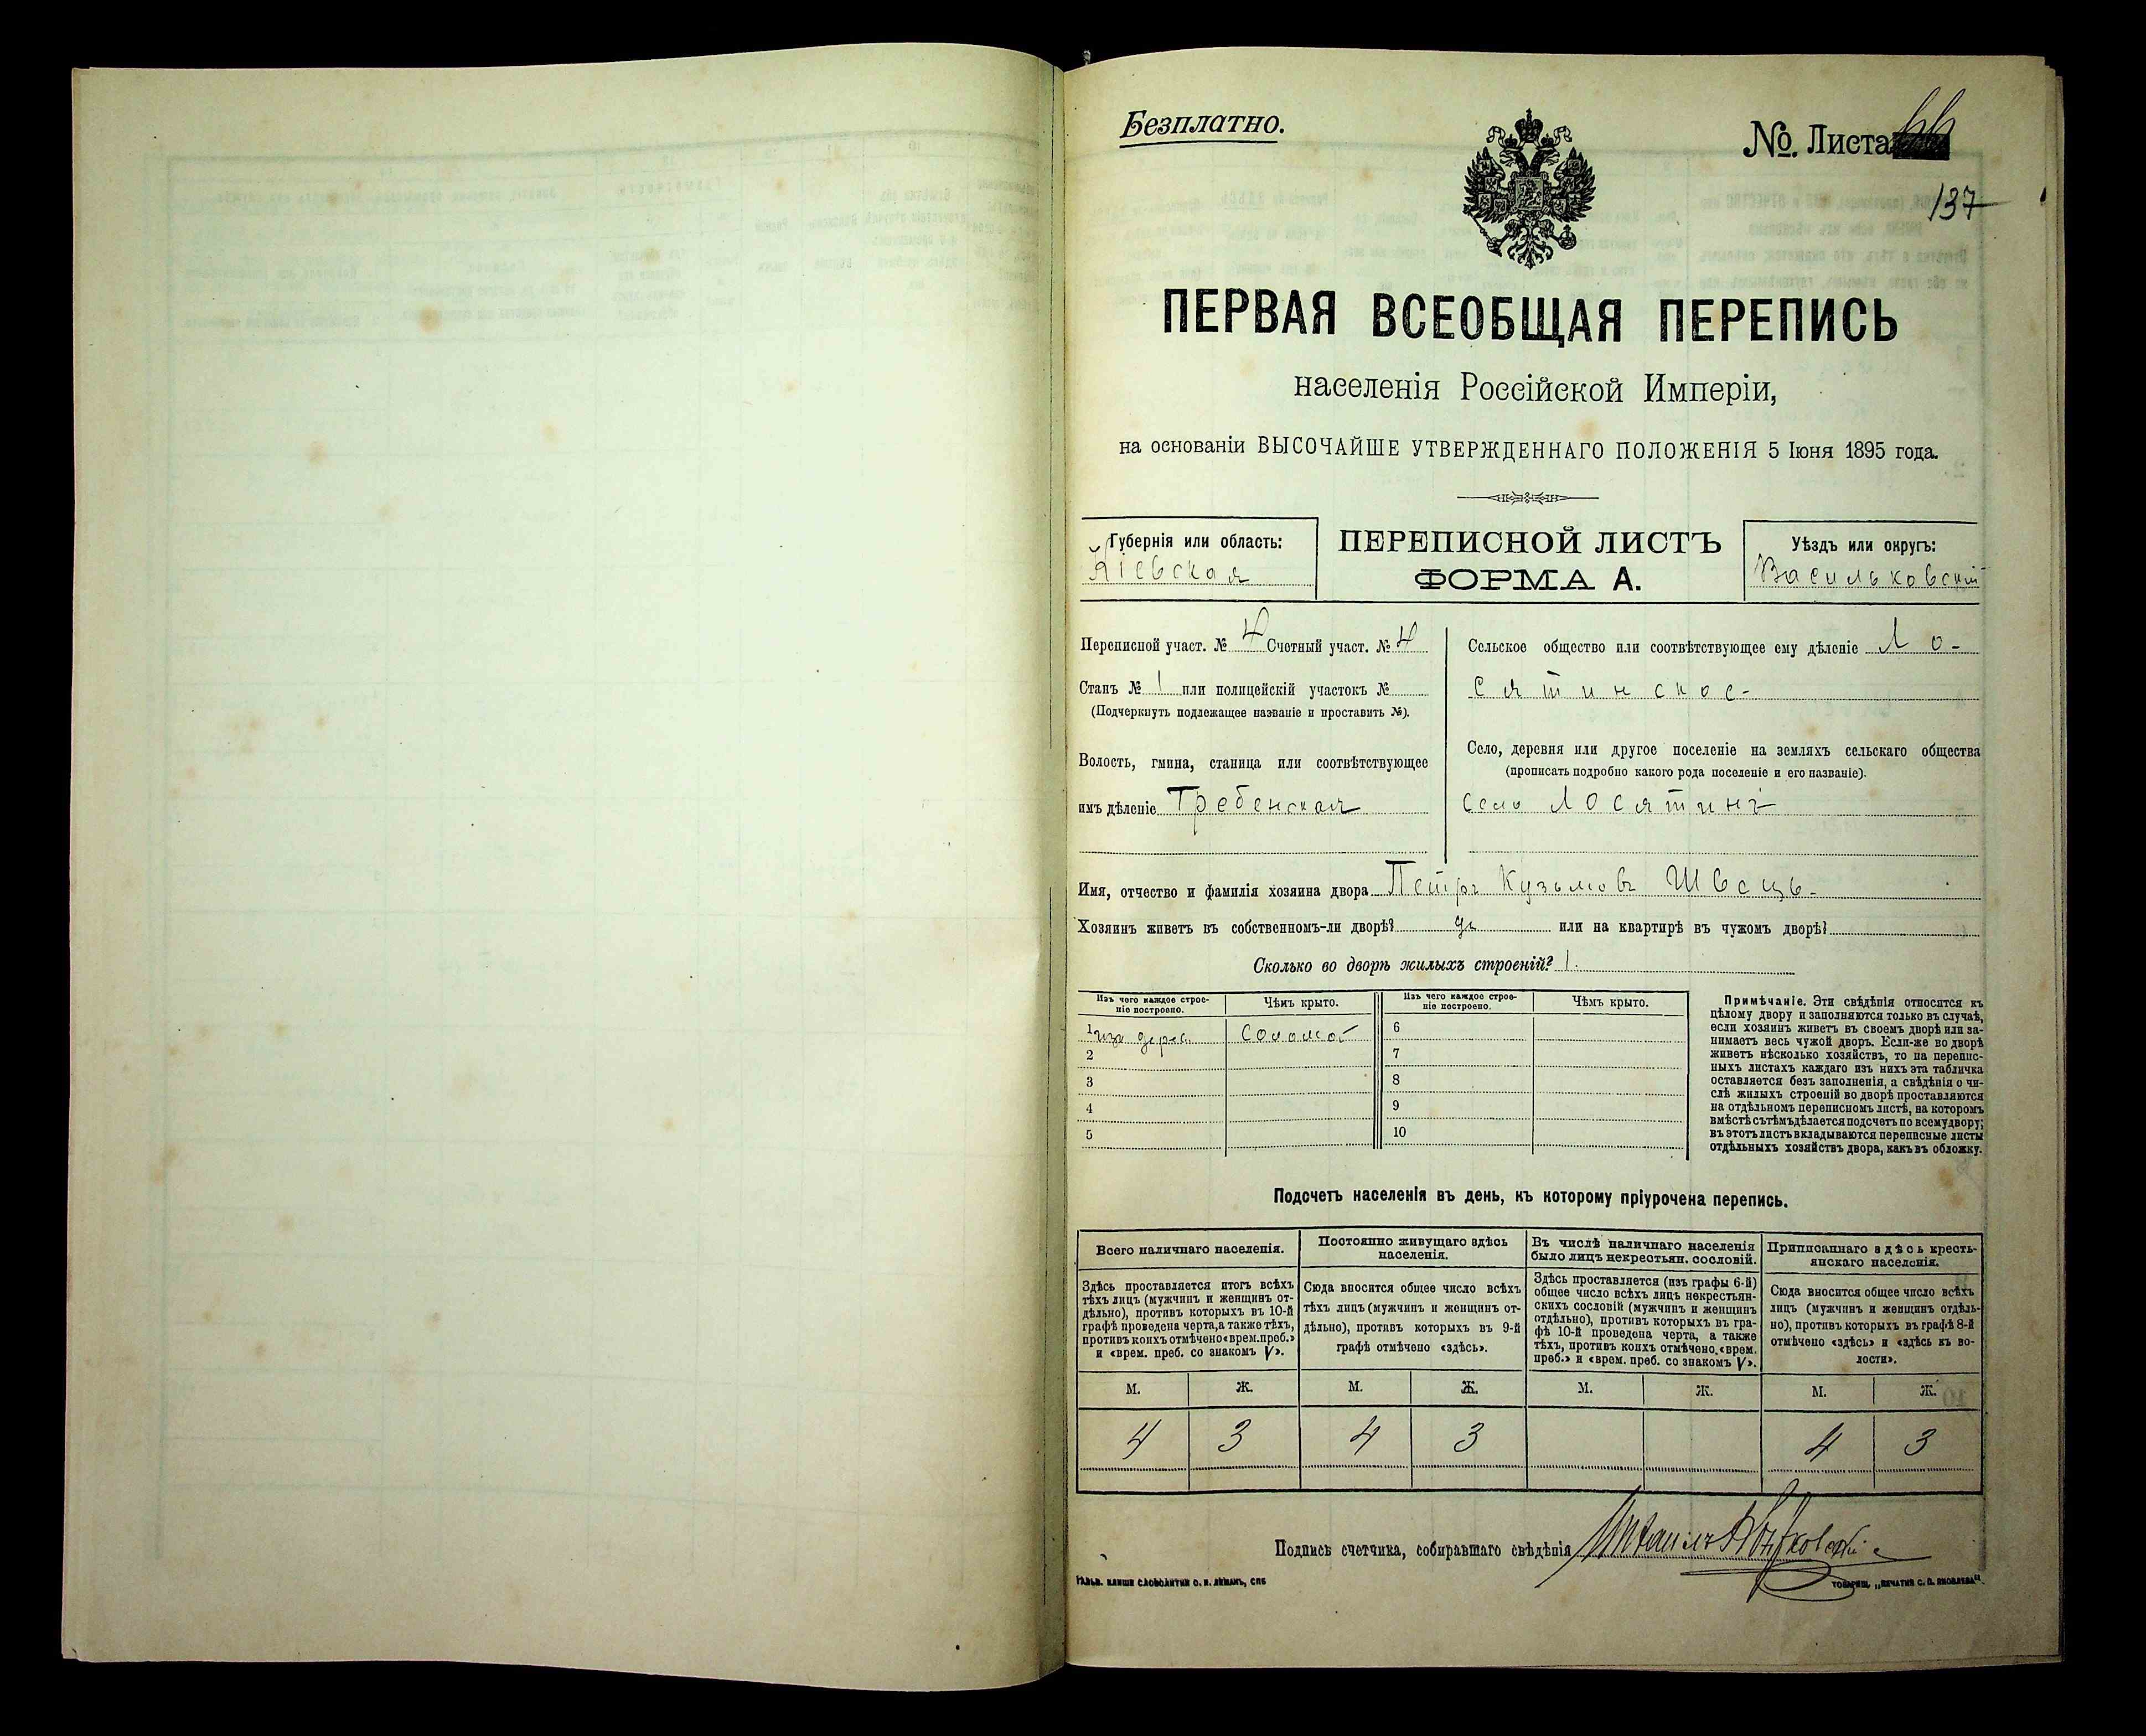 Безплатно.
№. Листа 66
137
ПЕРВАЯ ВСЕОБЩАЯ ПЕРЕПИСЬ
населенія Россійской Имперіи,
на основаніи ВЫСОЧАЙШЕ УТВЕРЖДЕННАГО ПОЛОЖЕНІЯ 5 Іюня 1895 года.
Губернія или область:
Кіевская
ПЕРЕПИСНОЙ ЛИСТЪ
ФОРМА А.
Уѣздъ или округъ:
Васильковскій
Переписной участ. № 4 Счетный участ. № 4
Станъ № 1 или полицейскій участокъ №
(Подчеркнуть подлежащее названіе и проставить №).
Волость, гмина, станица или соотвѣтствующее
имъ дѣленіе Гребенская
Сельское общество или соотвѣтствующее ему дѣленіе Ло-
сятинское-
Село, деревня или другое поселеніе на земляхъ сельскаго общества
(прописать подробно какого рода поселеніе и его названіе).
село Лосятинъ
Имя, отчество и фамилія хозяина двора Петръ Кузьмовъ Швецъ-
Хозяинъ живетъ въ собственномъ-ли дворѣ? да или на квартирѣ въ чужомъ дворѣ?
Сколько во дворѣ жилыхъ строеній? 1.
Изъ чего каждое строе-
ніе построено.
Чѣмъ крыто.
Изъ чего каждое строе-
ніе построено.
Чѣмъ крыто.
1 изъ дерев. соломой 6
2 7
3 8
4 9
5 10
Примѣчаніе. Эти свѣдѣнія относятся къ
цѣлому двору и заполняются только въ случаѣ,
если хозяинъ живетъ въ своемъ дворѣ или за-
нимаетъ весь чужой дворъ. Если-же во дворѣ
живетъ нѣсколько хозяйствъ, то на перепис-
ныхъ листахъ каждаго изъ нихъ эта табличка
оставляется безъ заполненія, а свѣдѣнія о чи-
слѣ жилыхъ строеній во дворѣ проставляются
на отдѣльномъ переписномъ листѣ, на которомъ
вмѣстѣ съ тѣмъ дѣлается подсчетъ по всему двору;
въ этотъ листъ вкладываются переписные листы
отдѣльныхъ хозяйствъ двора, какъ въ обложку.
Подсчетъ населенія въ день, къ которому пріурочена перепись.
Всего наличнаго населенія.
Здѣсь проставляется итогъ всѣхъ
тѣхъ лицъ (мужчинъ и женщинъ от-
дѣльно), противъ которыхъ въ 10-й
графѣ проведена черта, а также тѣхъ,
противъ коихъ отмѣчено «врем. преб.»
и «врем. преб. со знакомъ V».
Постоянно живущаго здѣсь
населенія.
Сюда вносится общее число всѣхъ
тѣхъ лицъ (мужчинъ и женщинъ от-
дѣльно), противъ которыхъ въ 9-й
графѣ отмѣчено «здѣсь».
Въ числѣ наличнаго населенія
было лицъ некрестьян. сословій.
Здѣсь проставляется (изъ графы 6-й)
общее число всѣхъ лицъ некрестьян-
скихъ сословій (мужчинъ и женщинъ
отдѣльно), противъ которыхъ въ гра-
фѣ 10-й проведена черта, а также
тѣхъ, противъ коихъ отмѣчено «врем.
преб.» и «врем. преб. со знакомъ V».
Приписаннаго здѣсь кресть-
янскаго населенія.
Сюда вносится общее число всѣхъ
лицъ (мужчинъ и женщинъ отдѣль-
но), противъ которыхъ въ графѣ 8-й
отмѣчено «здѣсь» и «здѣсь въ во-
лости».
М. Ж. М. Ж. М. Ж. М. Ж.
4 3 4 3 4 3
Подпись счетчика, собиравшаго свѣдѣнія
ГАЛЬВ. КЛИШЕ СЛОВОЛИТНИ О. И. ЛЕМАНЪ, СПБ
ТОВАРИЩ. „ПЕЧАТНЯ С. П. ЯКОВЛЕВА".